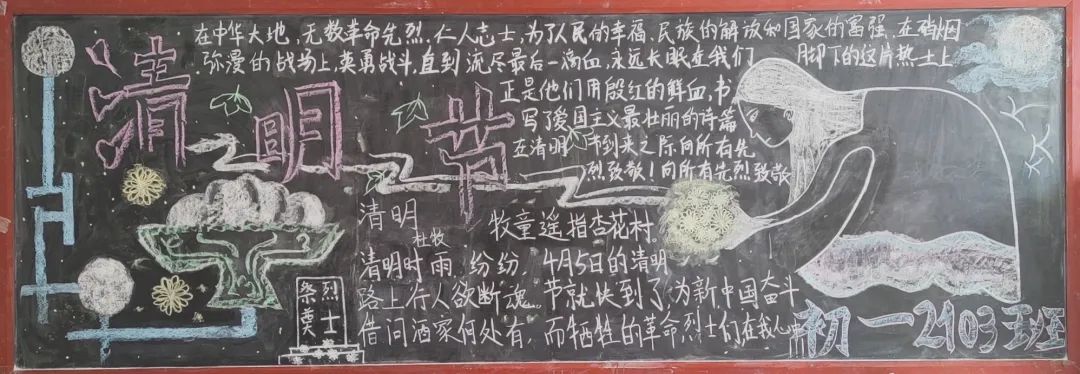 清明节
在中华大地,无数革命先烈.仁人志士,为了人民的幸福.民族的解放和国家的富强.在硝烟
弥漫的战场上,英勇战斗,直到流尽最后一滴血.永远长眠在我们脚下的这片热土上
正是他们用殷红的鲜血,书
写了爱国主义最壮丽的诗篇
在清明节到来之际向所有先
烈致敬!向所有先烈致敬
清明
杜牧
清明时雨纷纷,
路上行人欲断魂。
借问酒家何处有,
牧童遥指杏花村。
4月5日的清明
节就快到了,为新中国奋斗
而牺牲的革命烈士们在我心中
烈士
祭奠
初一2103班